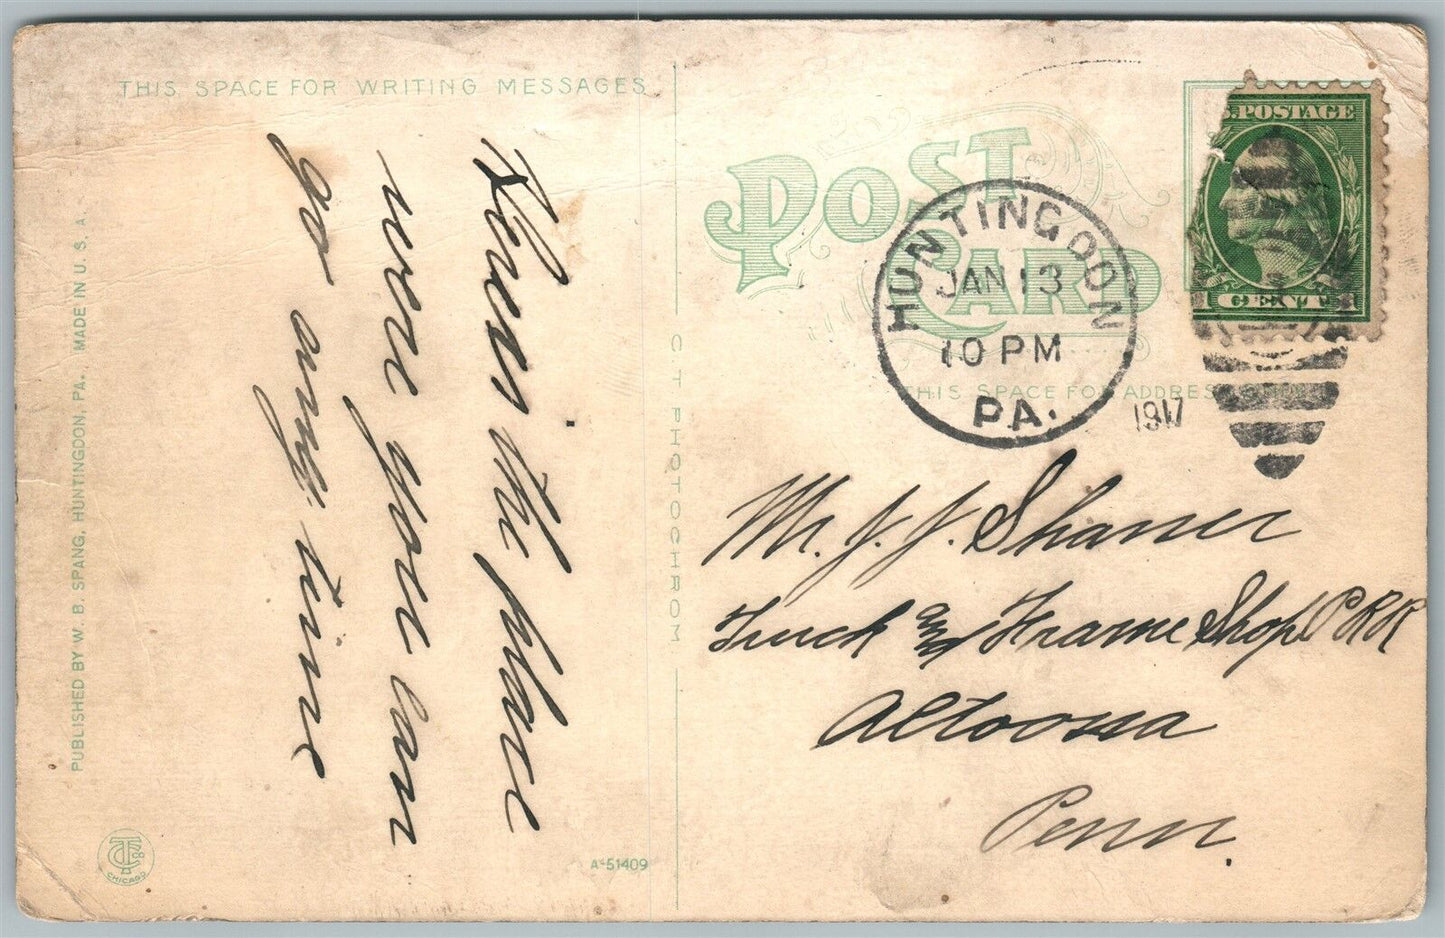 THIS SPACE FOR WRITING MESSAGES
When the place
were you can
go any time
PUBLISHED BY W. B. SPANG, HUNTINGDON, PA. MADE IN U. S. A.
CHICAGO
A-51409
C T PHOTOCHROM
POST CARD
THIS SPACE FOR ADDRESS
HUNTINGDON
JAN 13
10 PM
PA.
1917
U.S. POSTAGE
1 CENT 1
Mr. J. J. Shaner
Truck and Frame Shop P R R
Altoona
Penn.